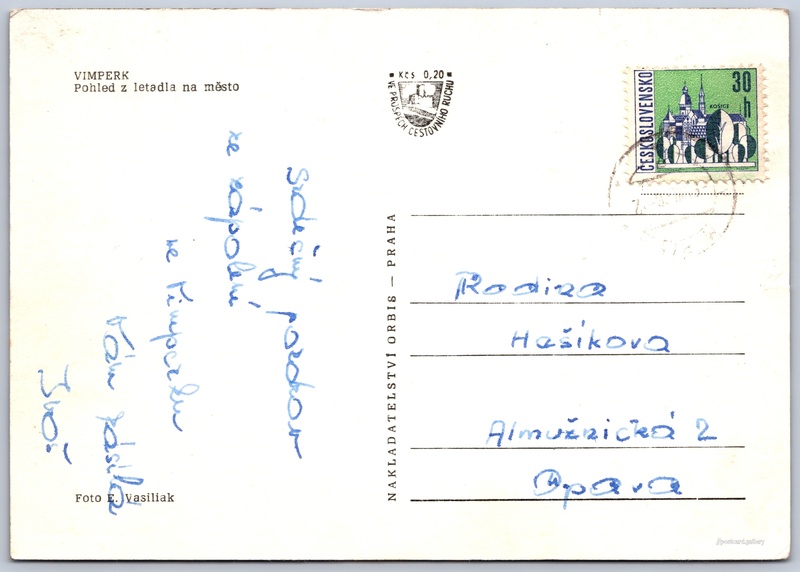 VIMPERK
Pohled z letadla na město
Kčs 0,20
VE PROSPĚCH CESTOVNÍHO RUCHU
ČESKOSLOVENSKO
30 h
KOŠICE
Srdečný pozdrav
ze zápolení
ve Vimperku
Vám zasílá
NAKLADATELSTVÍ ORBIS — PRAHA
Rodina
Hašíkova
Almužnická 2
Opava
Foto E. Vasiliak
//postcard.gallery